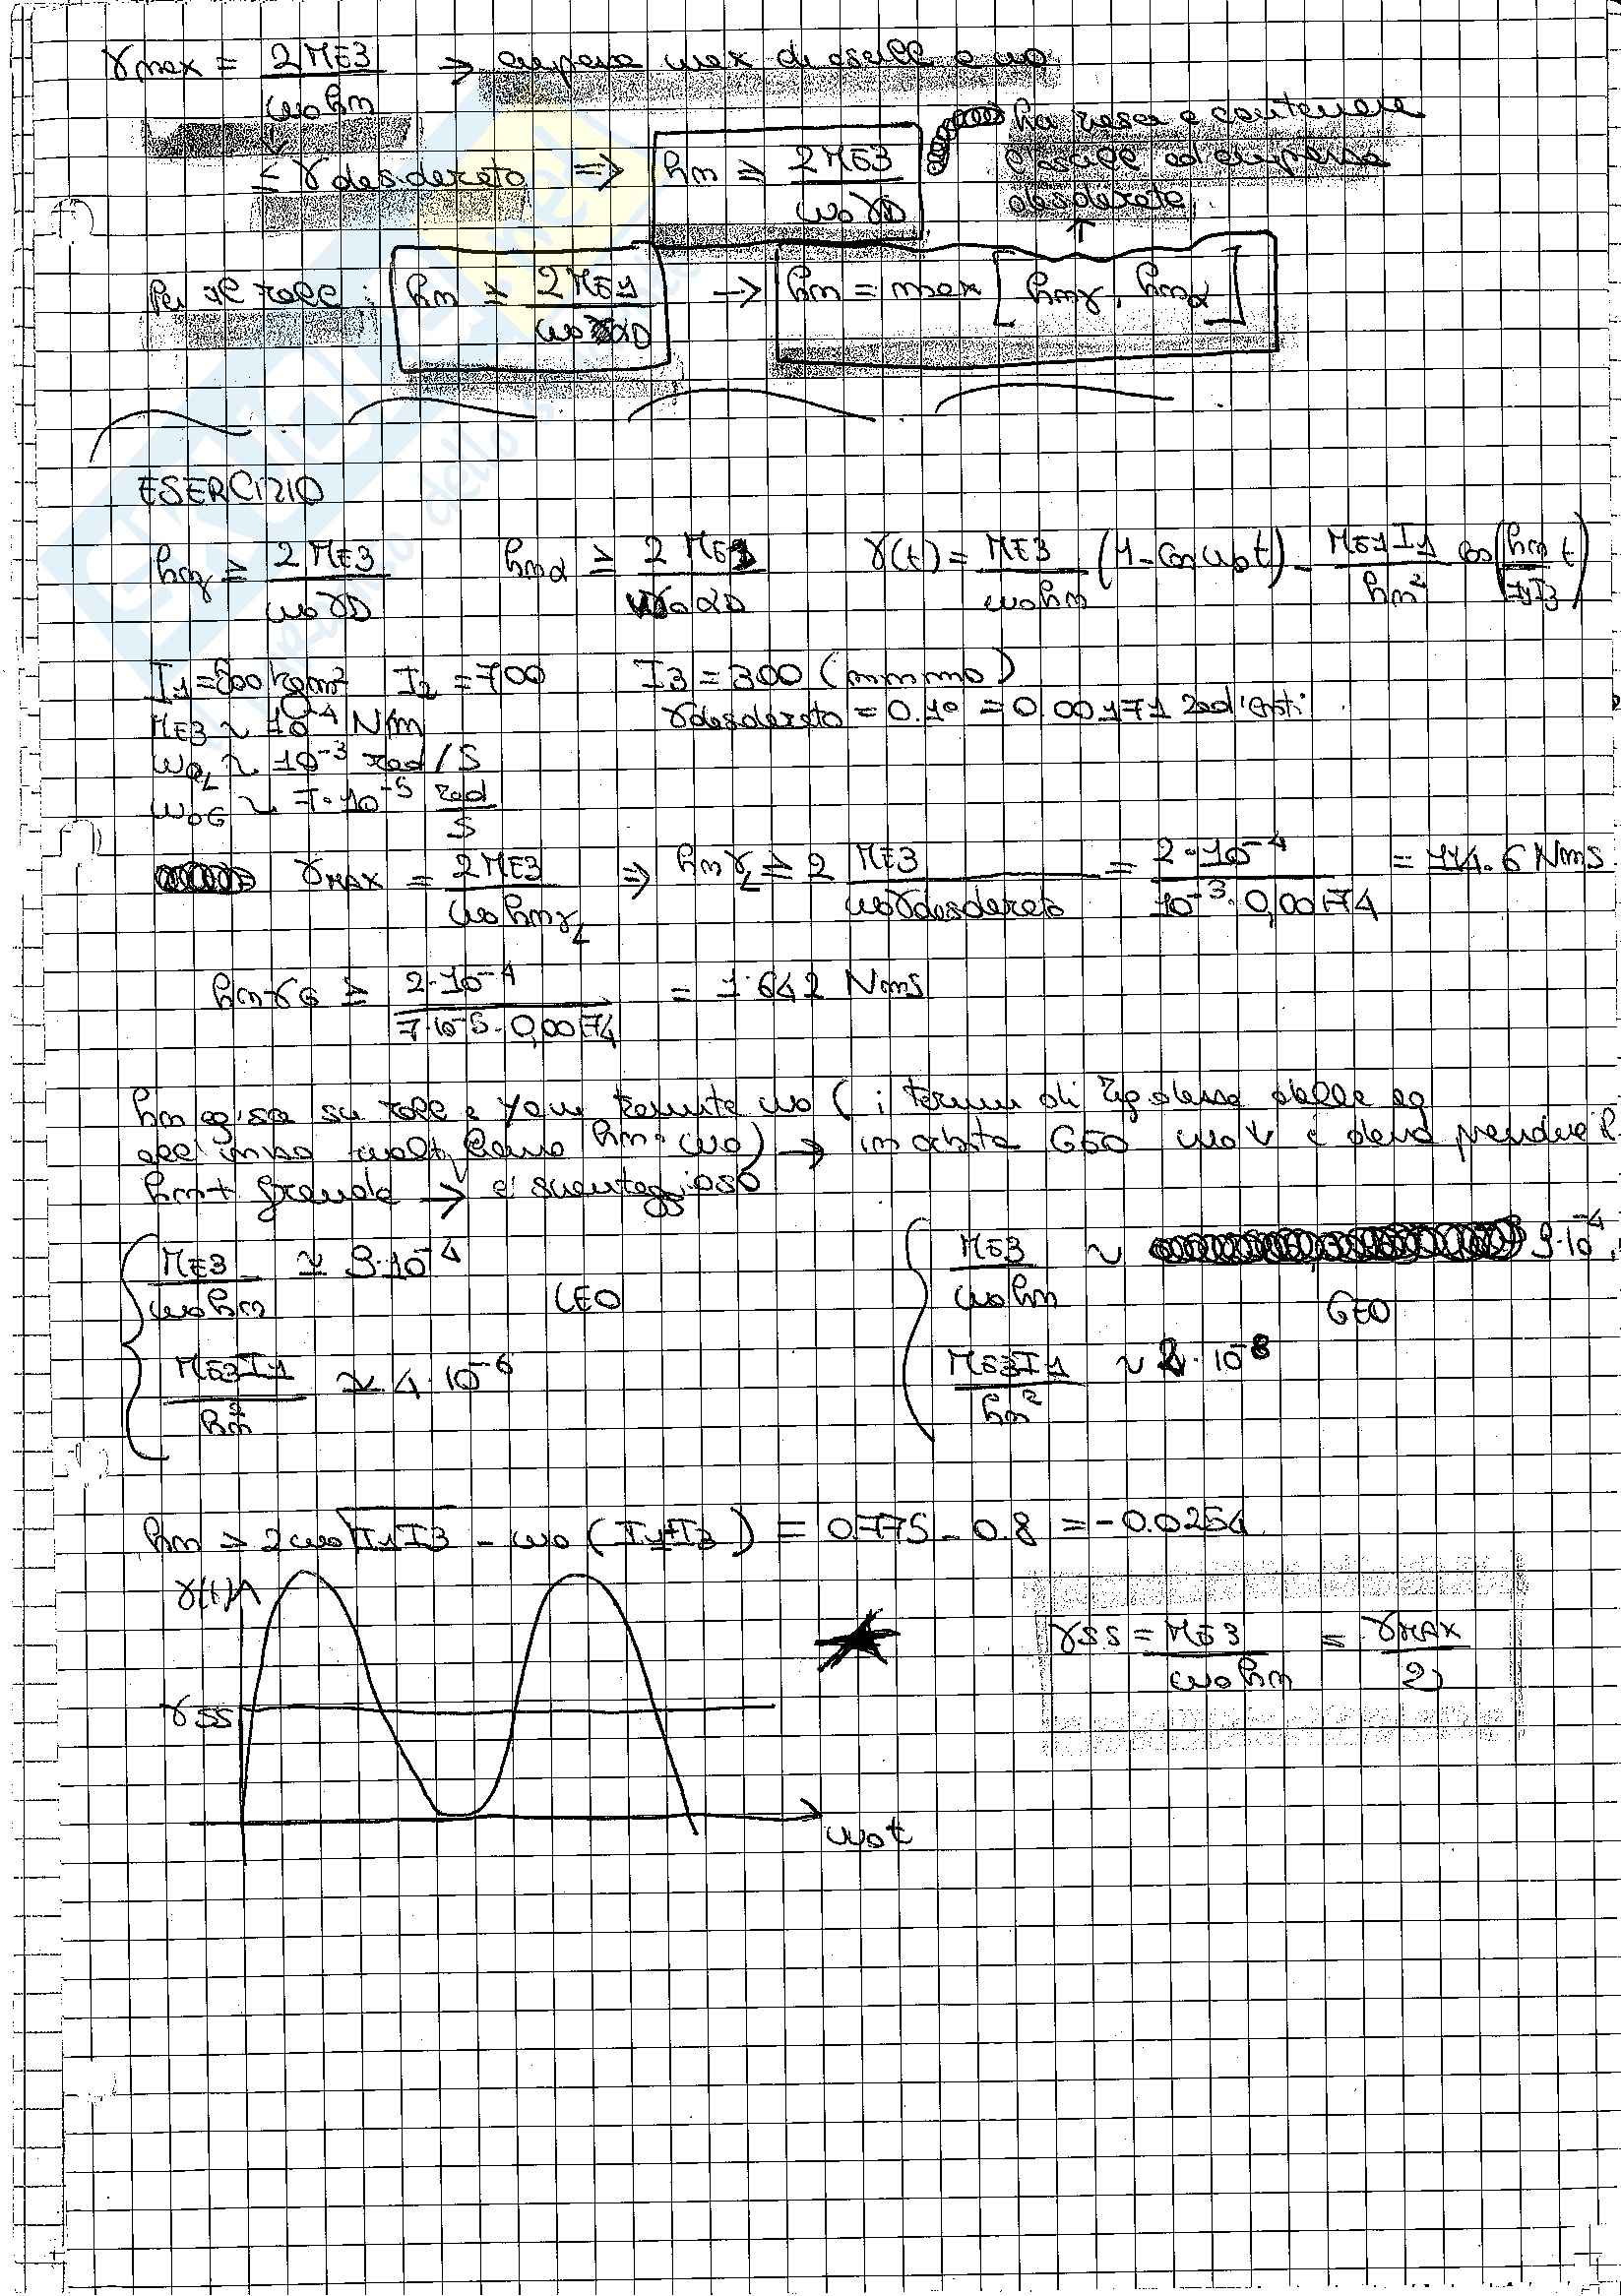 γmax = 2ME3 / ω0 hm → ampiezza max di oscill e ω0
≤ γ desiderato ⇒ hm ≥ 2ME3 / ω0 γD
ha resce a contenere
l'oscill ad ampiezza
desiderata
Per il roll: hm ≥ 2ME1 / ω0 αD → hm = max [ hmγ, hmα ]
ESERCIZIO
hmγ ≥ 2ME3 / ω0 γD hmα ≥ 2ME1 / ω0 αD γ(t) = ME3 / ω0 hm (1 - cos ω0 t) - ME1 I1 / hm² cos( hm / I1 I3 t)
I1 = 500 kgm² I2 = 700 I3 = 300 (minimo)
ME3 ~ 10^-4 N/m γ desiderato = 0.1° = 0,00171 radianti
ω0L ~ 10^-3 rad/s
ω0G ~ 7·10^-5 rad / s
γMAX = 2ME3 / ω0 hmγL ⇒ hmγL ≥ 2 ME3 / ω0 γ desiderato = 2·10^-4 / 10^-3 · 0,00174 = 114.6 Nms
hmγG ≥ 2·10^-4 / 7·10^-5 · 0,00174 = 1.642 Nms
hm agisce su roll e yaw tramite ω0 ( i termini di rigidezza delle eq
all' moltiplicano hm·ω0) → in orbita GEO ω0 ↓ e devo prendere h.
hm + grande → è svantaggioso
ME3 / ω0 hm ≃ 9·10^-4 LEO ME3 / ω0 hm ~ 9·10^-4 GEO
ME3 I1 / hm² ≃ 4·10^-6 ME3 I1 / hm² ~ 2·10^-8
hm > 2ω0 √I1 I3 - ω0 (I1+I3) = 0.775 - 0.8 = -0.0254
γ(t)
γSS = ME3 / ω0 hm = γMAX / 2
γSS
ω0 t